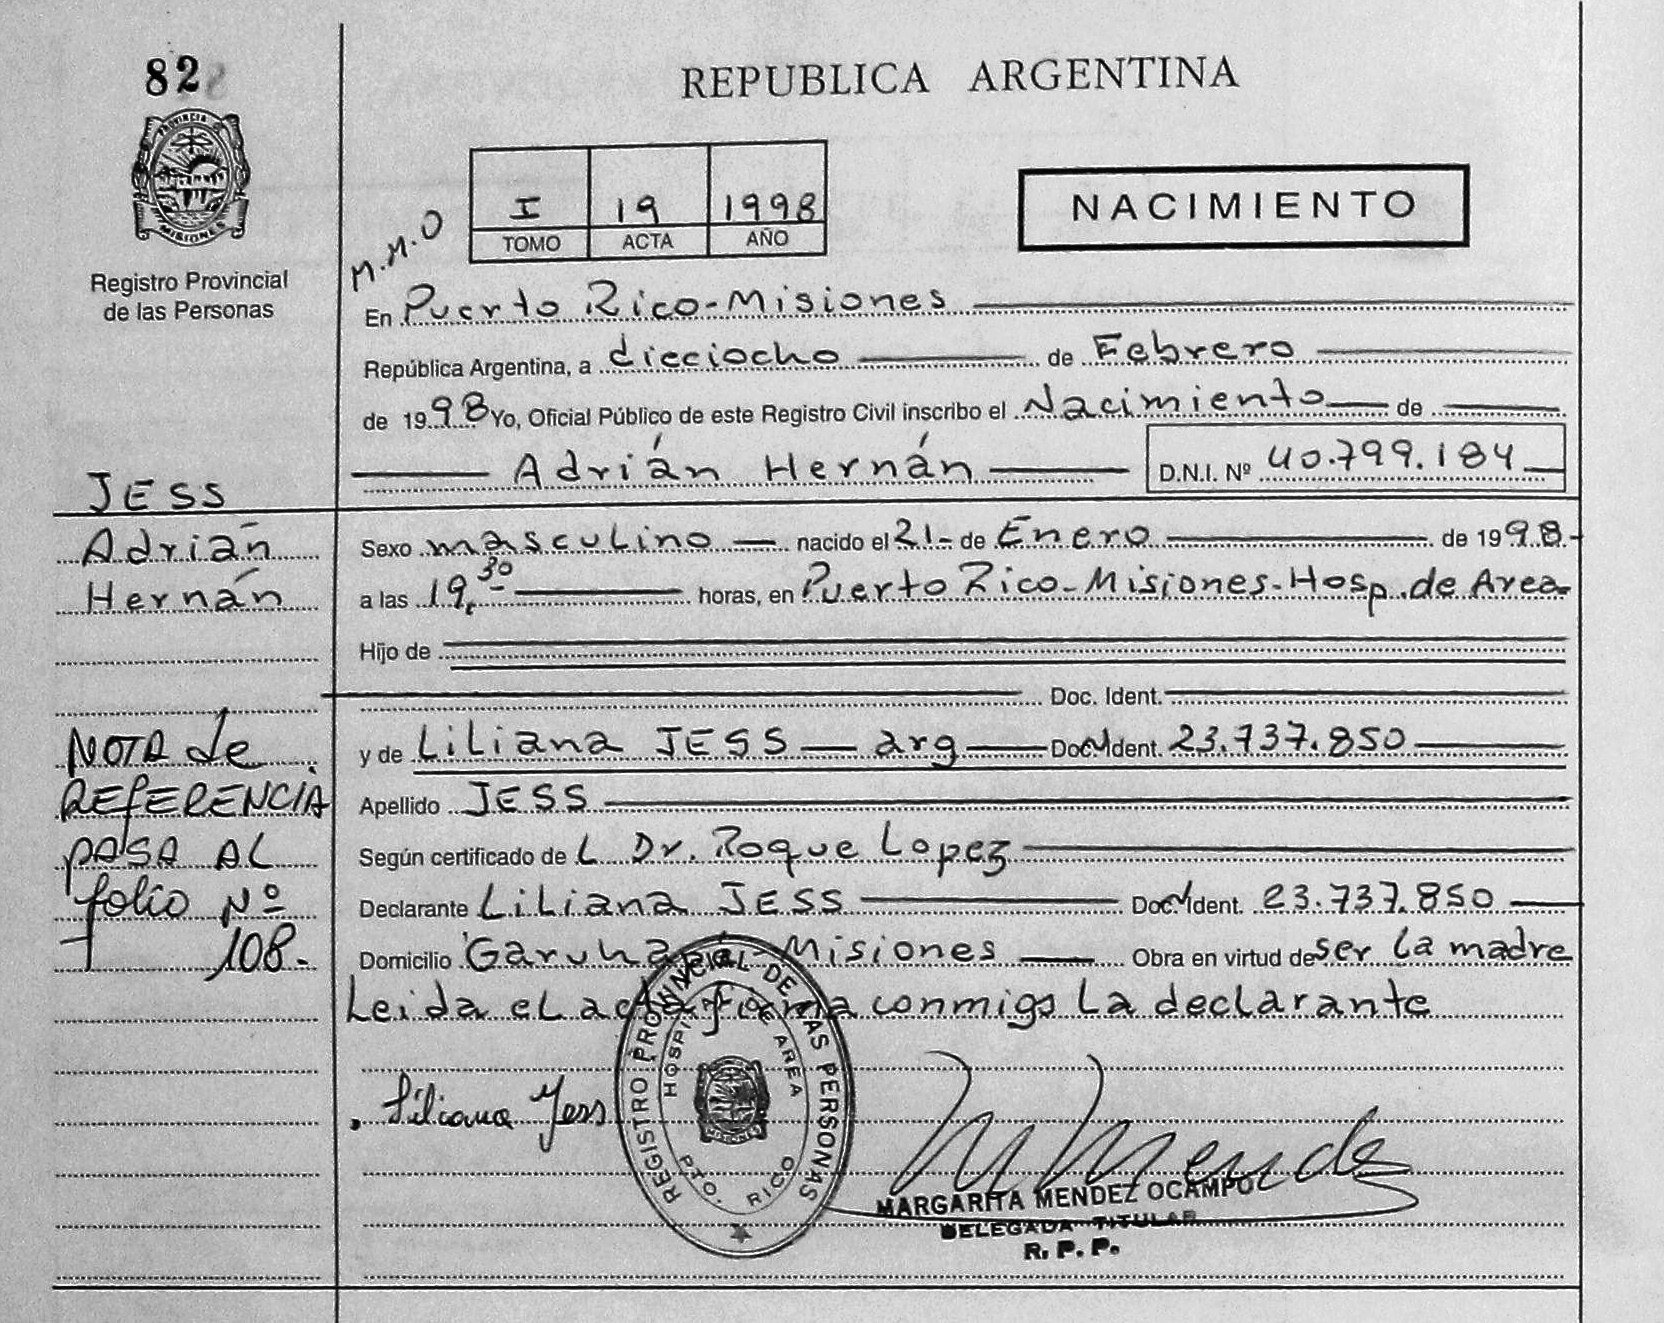 82
REPUBLICA ARGENTINA
PROVINCIA
MISIONES
Registro Provincial
de las Personas
I 19 1998
TOMO ACTA AÑO
NACIMIENTO
M.M.O
En Puerto Rico-Misiones
República Argentina, a dieciocho de Febrero
de 1998 Yo, Oficial Público de este Registro Civil inscribo el Nacimiento de
Adrián Hernán D.N.I. Nº 40.799.184
JESS
Adrián
Hernán
Sexo masculino nacido el 21- de Enero de 1998.-
a las 19,30 horas, en Puerto Rico-Misiones-Hosp.de Area-
Hijo de
Doc. Ident.
y de Liliana JESS arg Doc. Ident. 23.737.850
Apellido JESS
Según certificado de L Dr. Roque Lopez
Declarante Liliana JESS Doc. Ident. 23.737.850
Domicilio Garuhapé Misiones Obra en virtud de ser la madre
Leida el acta firma conmigo la declarante
NOTA de
REFERENCIA
PASA AL
folio Nº
108.-
Liliana Jess
REGISTRO PROVINCIAL DE LAS PERSONAS
HOSPITAL DE AREA
PTO. RICO
MISIONES
M Mendez
MARGARITA MENDEZ OCAMPO
DELEGADA TITULAR
R. P. P.